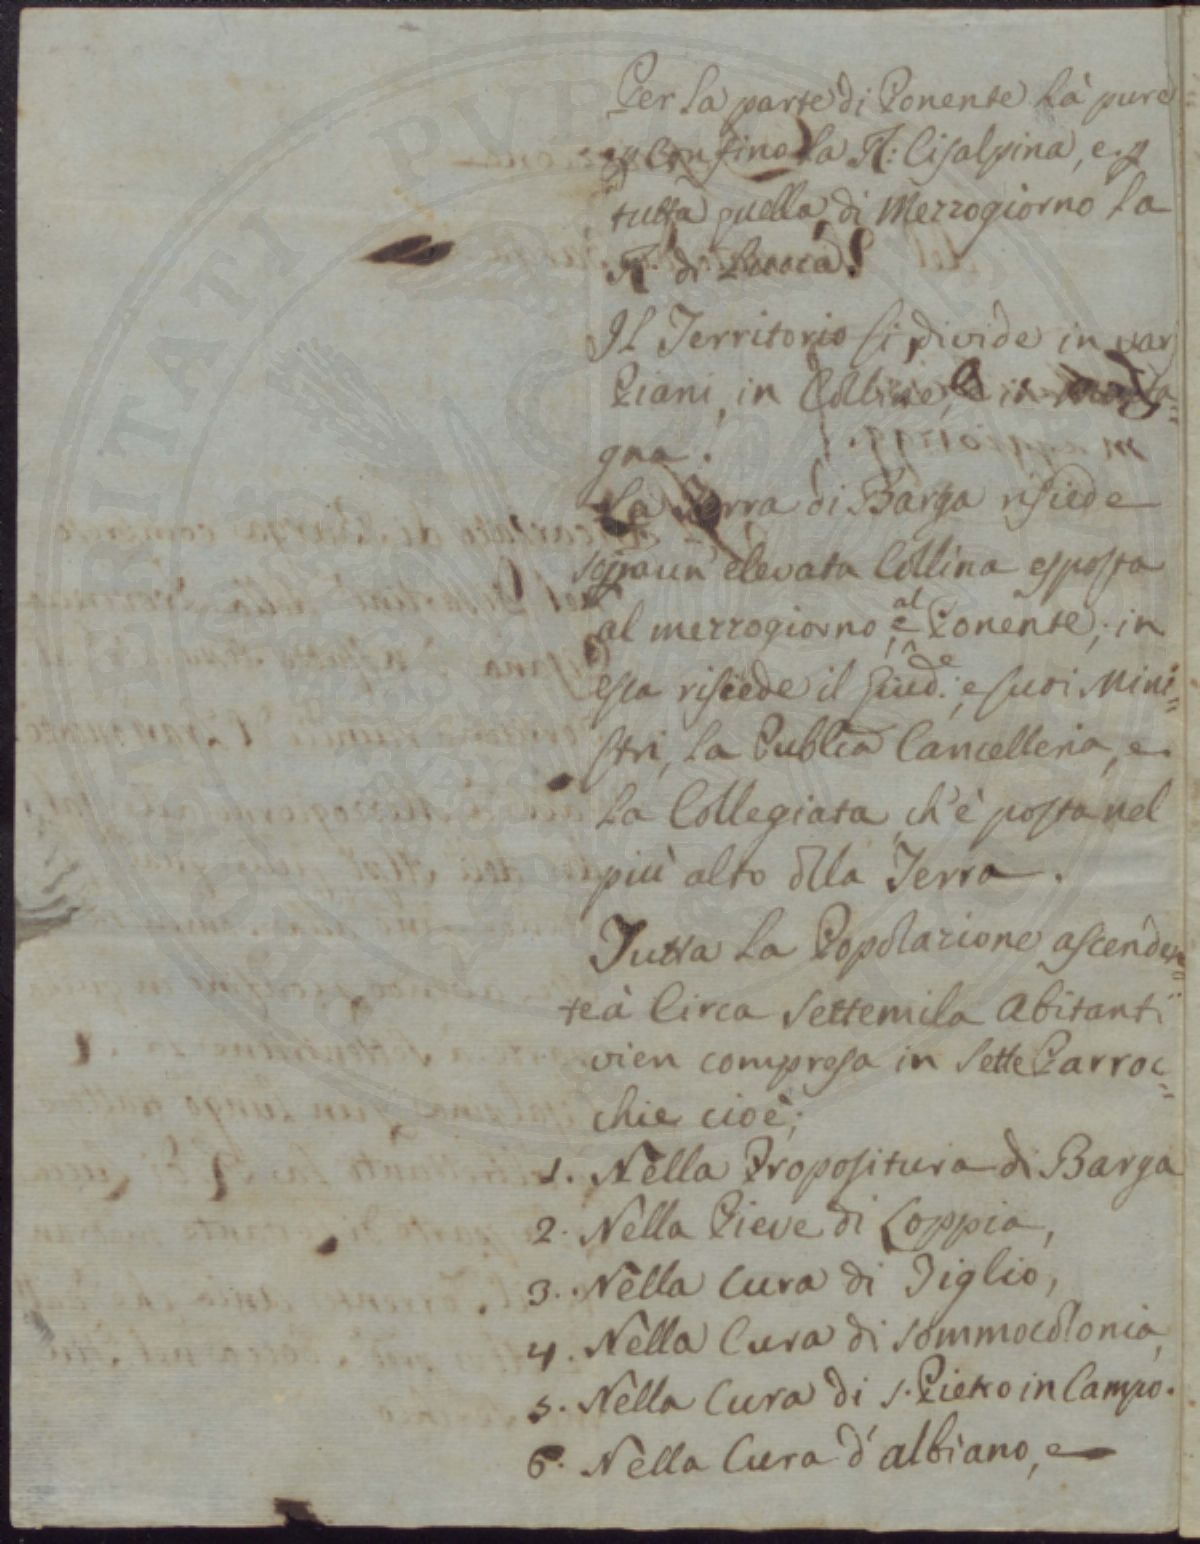 Per la parte di Ponente hà pure
p confino la R: Cisalpina, e p
tutta quella di Mezzogiorno la
R. di Lucca.
Il Territorio si divide in var
Piani, in Colline, e in monta=
gna.
La Terra di Barga risiede
sopra un' elevata Collina esposta
al mezzogiorno, e al Ponente; in
essa risiede il Giud.e, e suoi Mini=
stri, la Publica Cancelleria, e
la Collegiata, ch'è posta nel
più alto dlla Terra.
Tutta la Popolazione ascenden=
te à Circa settemila abitanti
vien compresa in sette Parroc=
chie cioè;
1. Nella Propositura di Barga
2. Nella Pieve di Loppia,
3. Nella Cura di Tiglio,
4. Nella Cura di Sommocolonia,
5. Nella Cura di S. Pietro in Campo.
6. Nella Cura d'albiano, e